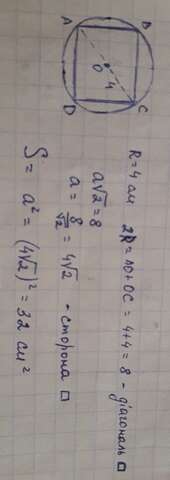 A B
O
4
D C
R = 4 см
2R = AO + OC = 4 + 4 = 8 - діагональ □
a√2 = 8
a = 8/√2 = 4√2 - сторона □
S = a² = (4√2)² = 32 см²